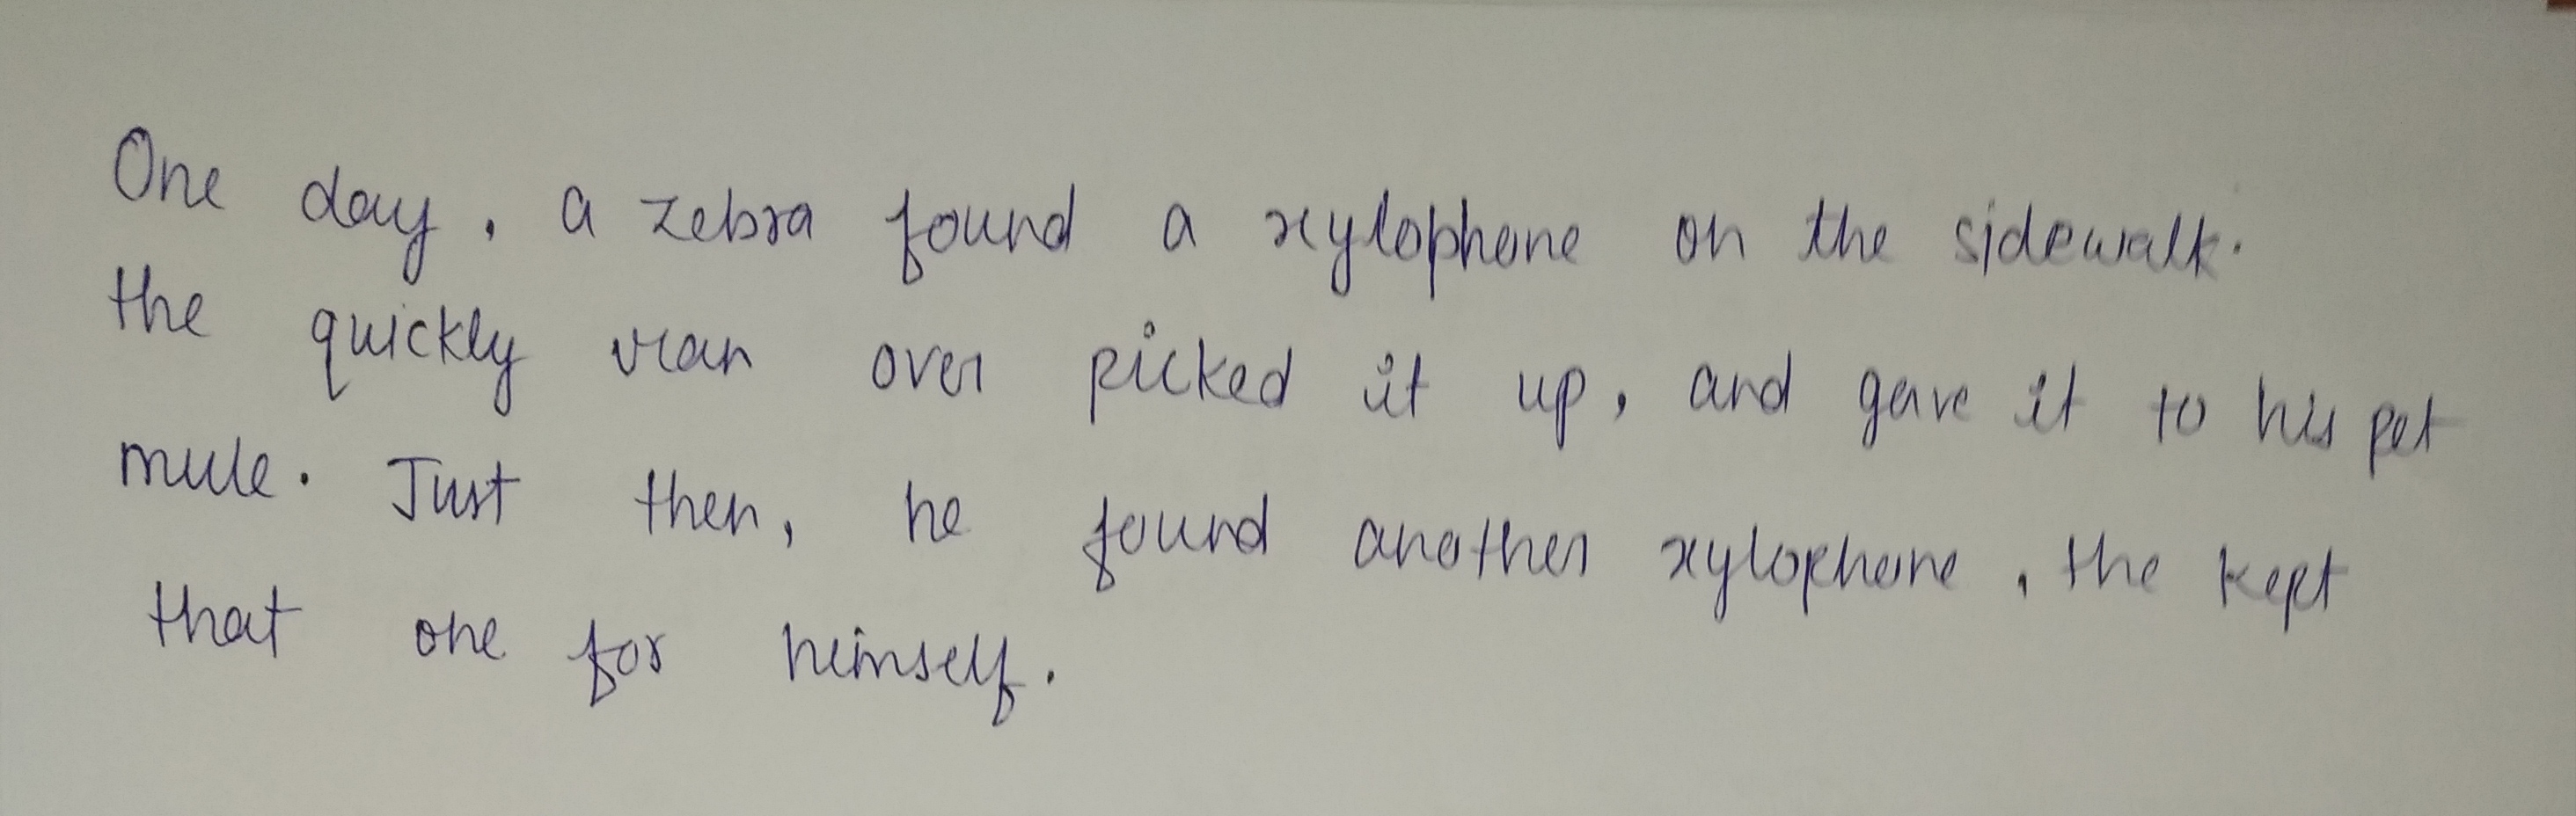 One day, a zebra found a xylophone on the sidewalk.
the quickly ran over picked it up, and gave it to his pet
mule. Just then, he found another xylophone, the kept
that one for himself.